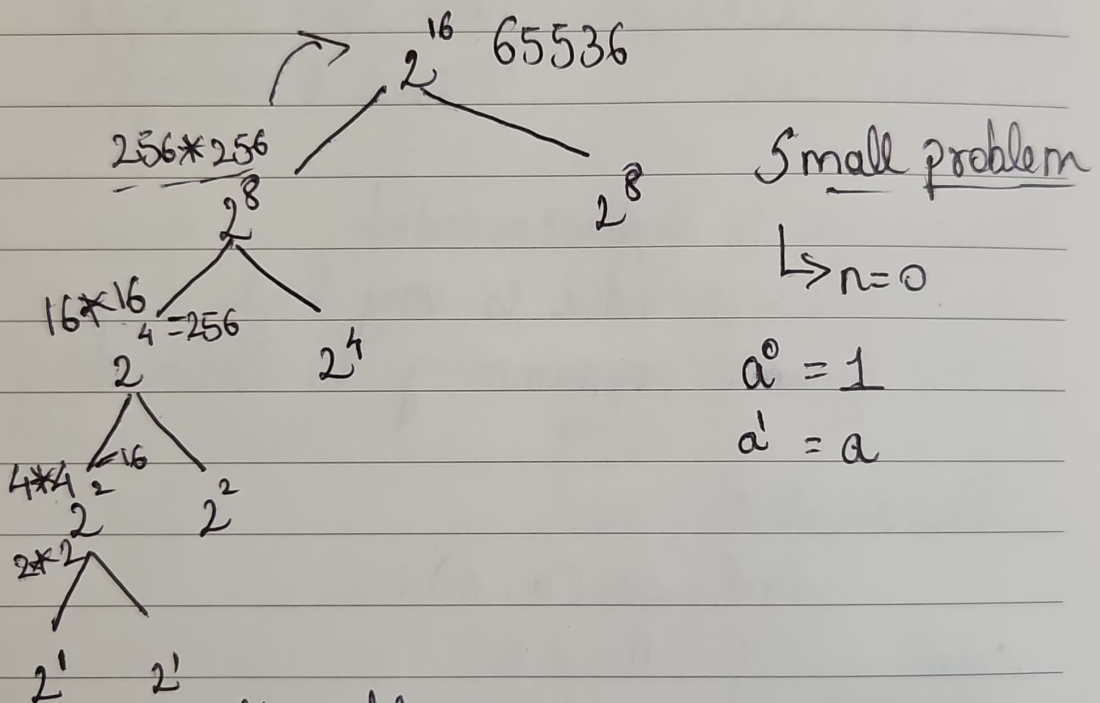 2^16 65536
256*256
2^8 2^8
Small problem
↳ n=0
16*16
=256
2^4 2^4
a^0 = 1
a^1 = a
4*4 =16
2^2 2^2
2*2
2^1 2^1